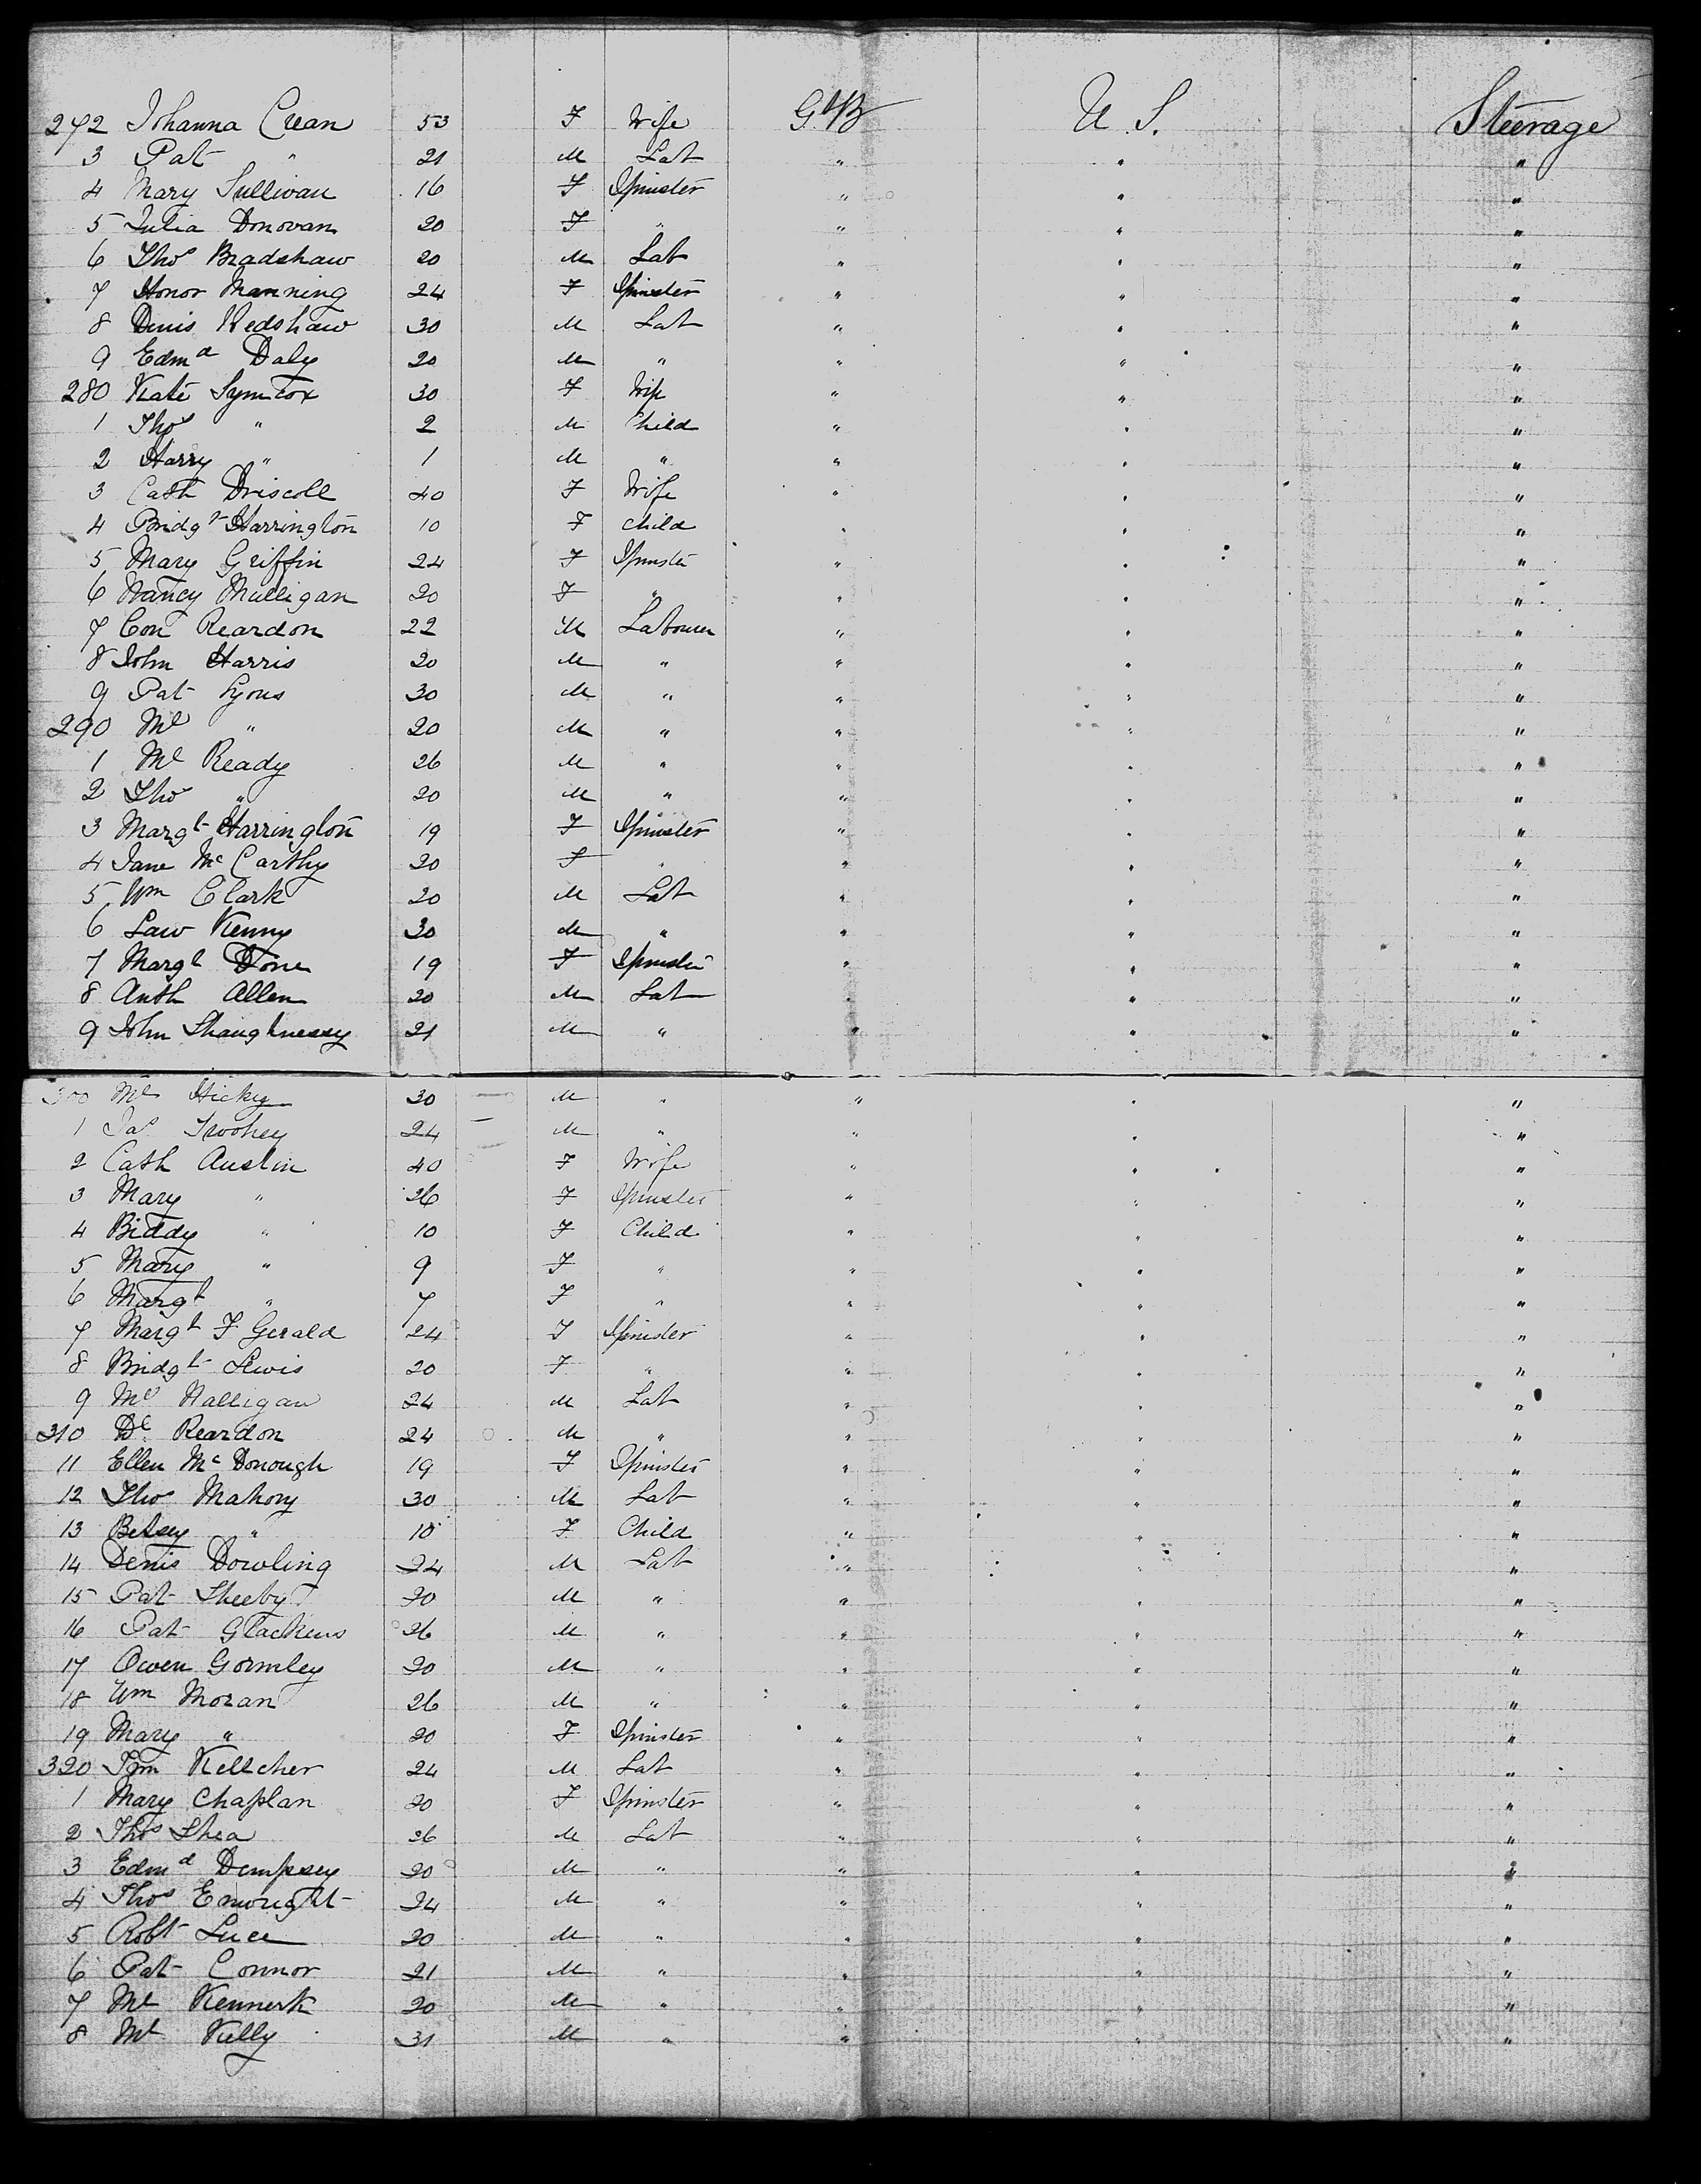 272 Johanna Crean 53 F Wife Gt B U. S. Steerage
3 Pat " 21 M Lab " " "
4 Mary Sullivan 16 F Spinster " " "
5 Julia Donovan 20 F " " " "
6 Thos Bradshaw 20 M Lab " " "
7 Honor Manning 24 F Spinster " " "
8 Denis Kedshaw 30 M Lab " " "
9 Edmd Daly 20 M " " " "
280 Kate Symcox 30 F Wife " " "
1 Thos " 2 M Child " " "
2 Harry " 1 M " " " "
3 Cath Driscoll 40 F Wife " " "
4 Bridgt Harrington 10 F Child " " "
5 Mary Griffin 24 F Spinster " " "
6 Nancy Mulligan 20 F " " " "
7 Con Reardon 22 M Labourer " " "
8 John Harris 20 M " " " "
9 Pat Lyons 30 M " " " "
290 Ml " 20 M " " " "
1 Ml Ready 26 M " " " "
2 Thos " 20 M " " " "
3 Margt Harrington 19 F Spinster " " "
4 Jane Mc Carthy 20 F " " " "
5 Wm Clark 20 M Lab " " "
6 Law Kenny 30 M " " " "
7 Margt Done 19 F Spinster " " "
8 Anth Allen 20 M Lab " " "
9 John Shaughnessy 21 M " " " "
300 Ml Hickey 30 M " " " "
1 Jas Twohey 24 M " " " "
2 Cath Austin 40 F Wife " " "
3 Mary " 26 F Spinster " " "
4 Biddy " 10 F Child " " "
5 Mary " 9 F " " " "
6 Margt " 7 F " " " "
7 Margt F Gerald 24 F Spinster " " "
8 Bridgt Lewis 20 F " " " "
9 Ml Halligan 24 M Lab " " "
310 Dl Reardon 24 M " " " "
11 Ellen Mc Donough 19 F Spinster " " "
12 Thos Mahony 30 M Lab " " "
13 Betsey " 10 F Child " " "
14 Denis Dowling 24 M Lab " " "
15 Pat Sheeby 20 M " " " "
16 Pat Glackens 26 M " " " "
17 Owen Gormley 20 M " " " "
18 Wm Moran 26 M " " " "
19 Mary " 20 F Spinster " " "
320 Tim Kelleher 24 M Lab " " "
1 Mary Chaplan 20 F Spinster " " "
2 Thos Shea 26 M Lab " " "
3 Edmd Dempsey 20 M " " " "
4 Thos Enwright 24 M " " " "
5 Robt Luce 20 M " " " "
6 Pat Connor 21 M " " " "
7 Ml Kennerk 20 M " " " "
8 Ml Kelly 31 M " " " "